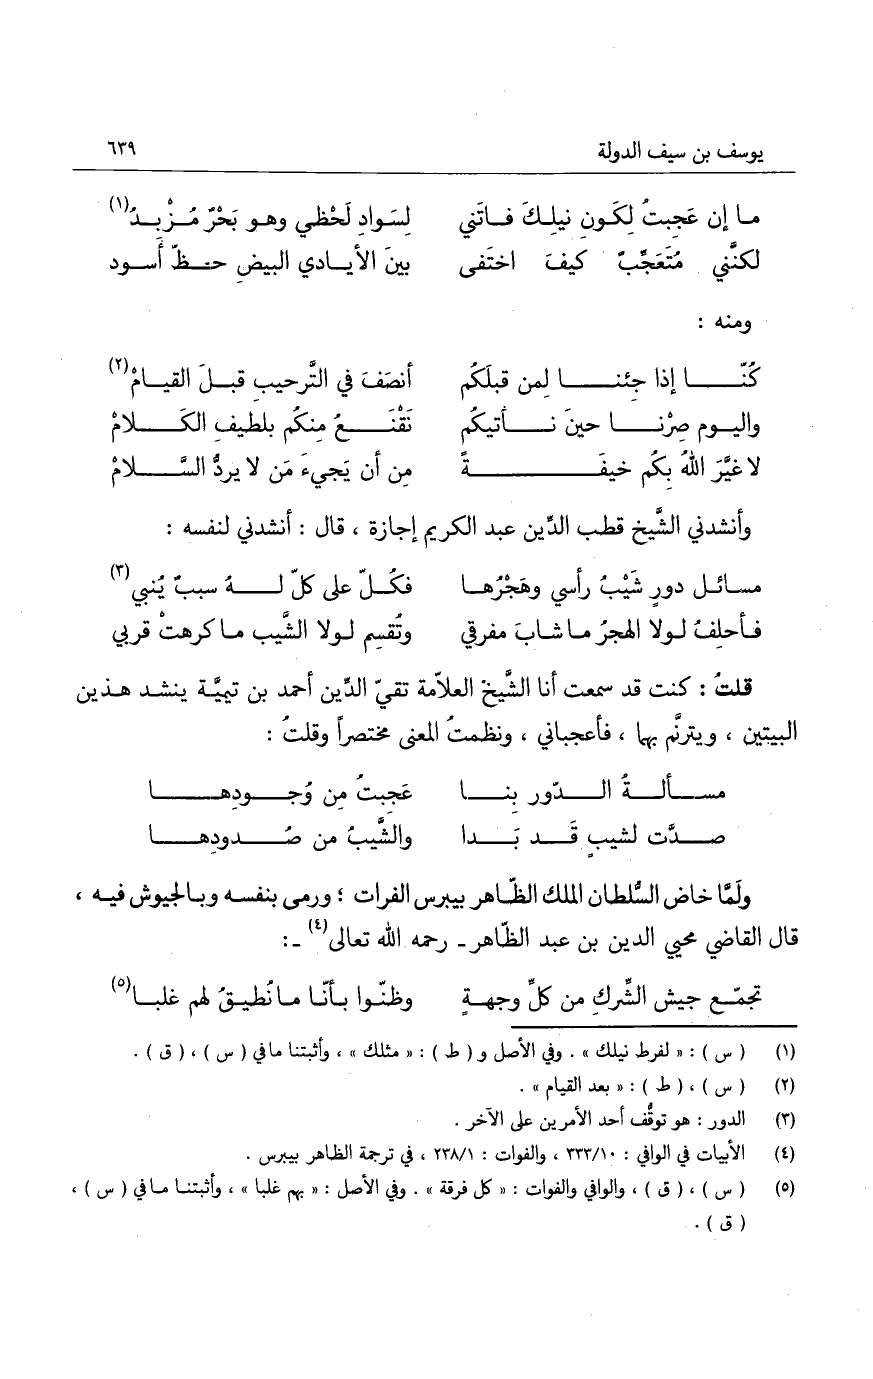 يوسف بن سيف الدولة ٦٣٩
ما إن عَجبتُ لكون نيلكَ فاتَني لسَوادِ لَحْظي وهو بَحْرٌ مُزْبدُ(١)
لكنَّني مُتَعَجِّبٌ كيفَ اختَفى بينَ الأيادي البيضِ حظٌّ أسود
ومنه :
كُنّا إذا جئنا لِمن قبلَكُم أنصَفَ في التَّرحيبِ قبلَ القيامْ(٢)
واليوم صِرْنا حينَ نأتيكُم نَقْنَعُ منكُم بلطيفِ الكَلامْ
لا غيَّرَ اللهُ بكُم خيفَةً مِن أن يَجيءَ مَن لا يردُّ السَّلامْ
وأنشدني الشَّيخ قطب الدِّين عبد الكريم إجازة ، قال : أنشدني لنفسه :
مسائل دورٍ شَيْبُ رأسي وهَجْرُها فكُلٌّ على كلٍّ لهُ سببٌ يُنبي(٣)
فأحلِفُ لولا الهجرُ ما شابَ مفرقي وتُقسِم لولا الشَّيب ما كرهتْ قربي
قلتُ : كنت قد سمعت أنا الشَّيخ العلاّمة تقيّ الدِّين أحمد بن تيميَّة ينشد هذين
البيتين ، ويترنَّم بها ، فأعجباني ، ونظمتُ المعنى مختصراً وقلتُ :
مسألةُ الدّور بنا عَجبتُ مِن وُجودها
صدَّت لشيبٍ قَد بَدا والشَّيبُ من صُدودها
ولَمَّا خاض السُّلطان الملك الظّاهر بيبرس الفرات ؛ ورمى بنفسه وبالجيوش فيه ،
قال القاضي محيي الدين بن عبد الظّاهر ـ رحمه الله تعالى(٤) ـ:
تجمّع جيش الشِّركِ من كلِّ وجهةٍ وظنّوا بأنّا ما نُطيقُ لهم غلبا(٥)
(١) ( س ) : « لفرط نيلك » . وفي الأصل و ( ط ) : « مثلك » ، وأثبتنا ما في ( س ) ، ( ق ) .
(٢) ( س ) ، ( ط ) : « بعد القيام » .
(٣) الدور : هو توقُّف أحد الأمرين على الآخر .
(٤) الأبيات في الوافي : ٣٣٣/١٠ ، والفوات : ٢٣٨/١ ، في ترجمة الظاهر بيبرس .
(٥) ( س ) ، ( ق ) ، والوافي والفوات : « كل فرقة » . وفي الأصل : « بهم غلبا » ، وأثبتنا ما في ( س ) ،
( ق ) .